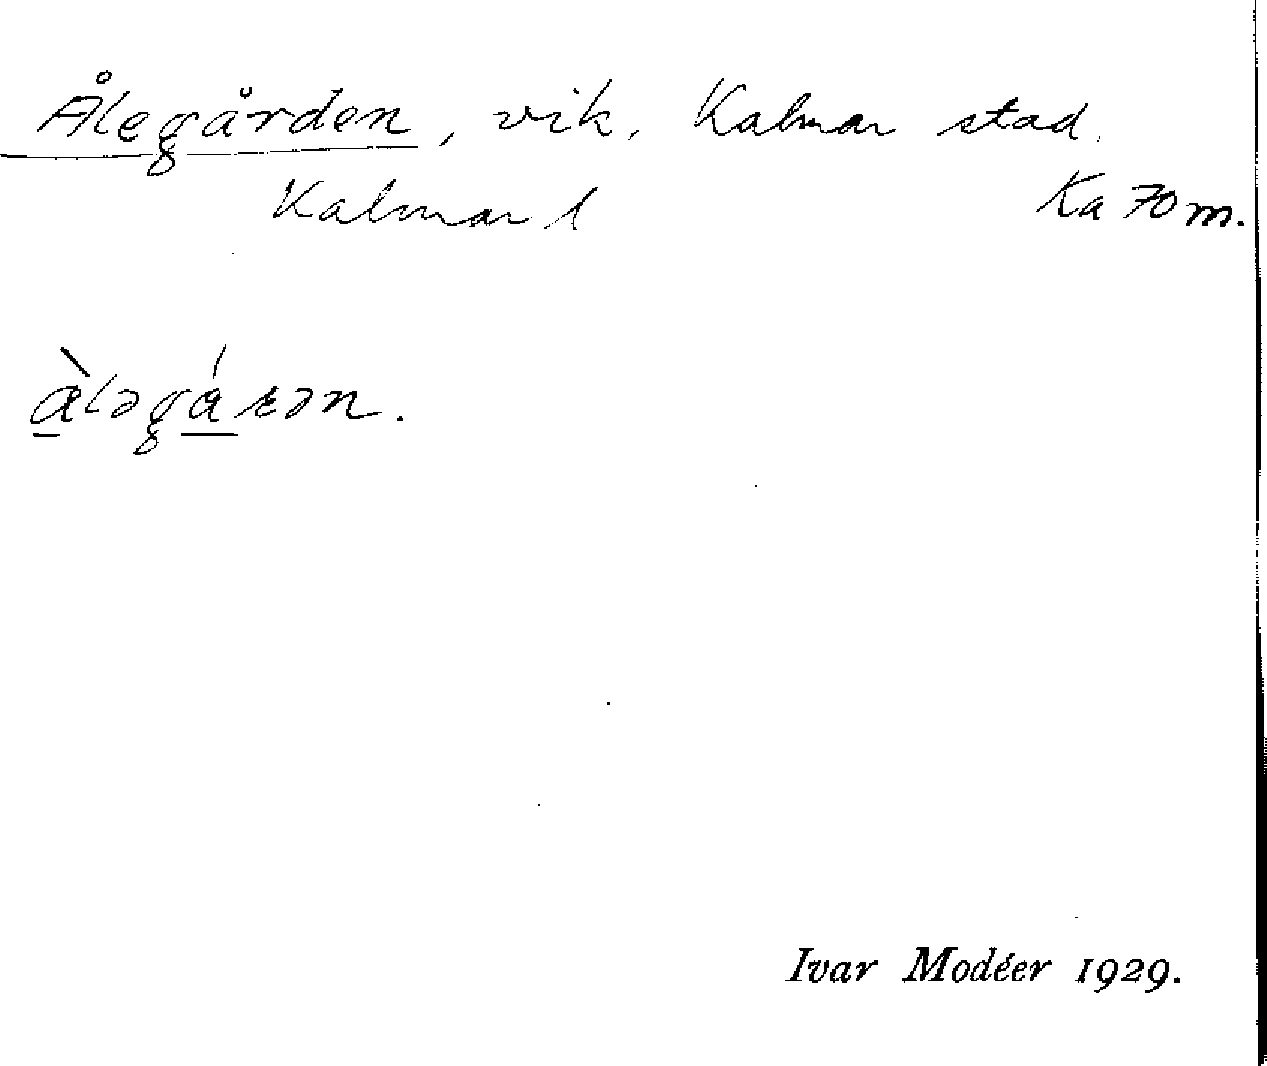 Ålegården, vik, Kalmar stad.
Kalmar l Ka 70 m.
àləgáɛən.
Ivar Modéer 1929.